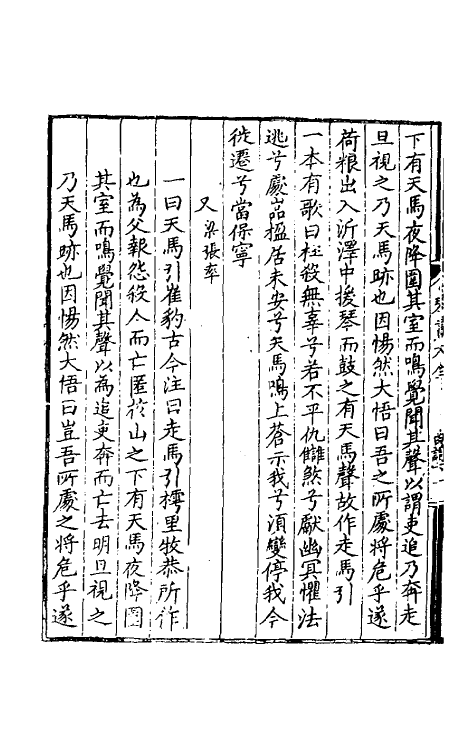 下有天馬夜降圍其室而鳴覺聞其聲以謂吏追乃奔走
旦視之乃天馬跡也因惕然大悟曰吾之所處將危乎遂
荷糧出入沂澤中援琴而鼓之有天馬聲故作走馬引
一本有歌曰枉殺無辜兮若不平仇讎煞兮獻幽冥懼法
逃兮處嵓搵居未安兮天馬鳴上蒼示我兮湏變停我今
徙遷兮當保寧
又梁張率
一曰天馬引崔豹古今注曰走馬引樗里牧恭所作
也為父報怨殺人而亡匿於山之下有天馬夜降圍
其室而鳴覺聞其聲以為追吏奔而亡去明旦視之
乃天馬跡也因惕然大悟曰豈吾所處之將危乎遂